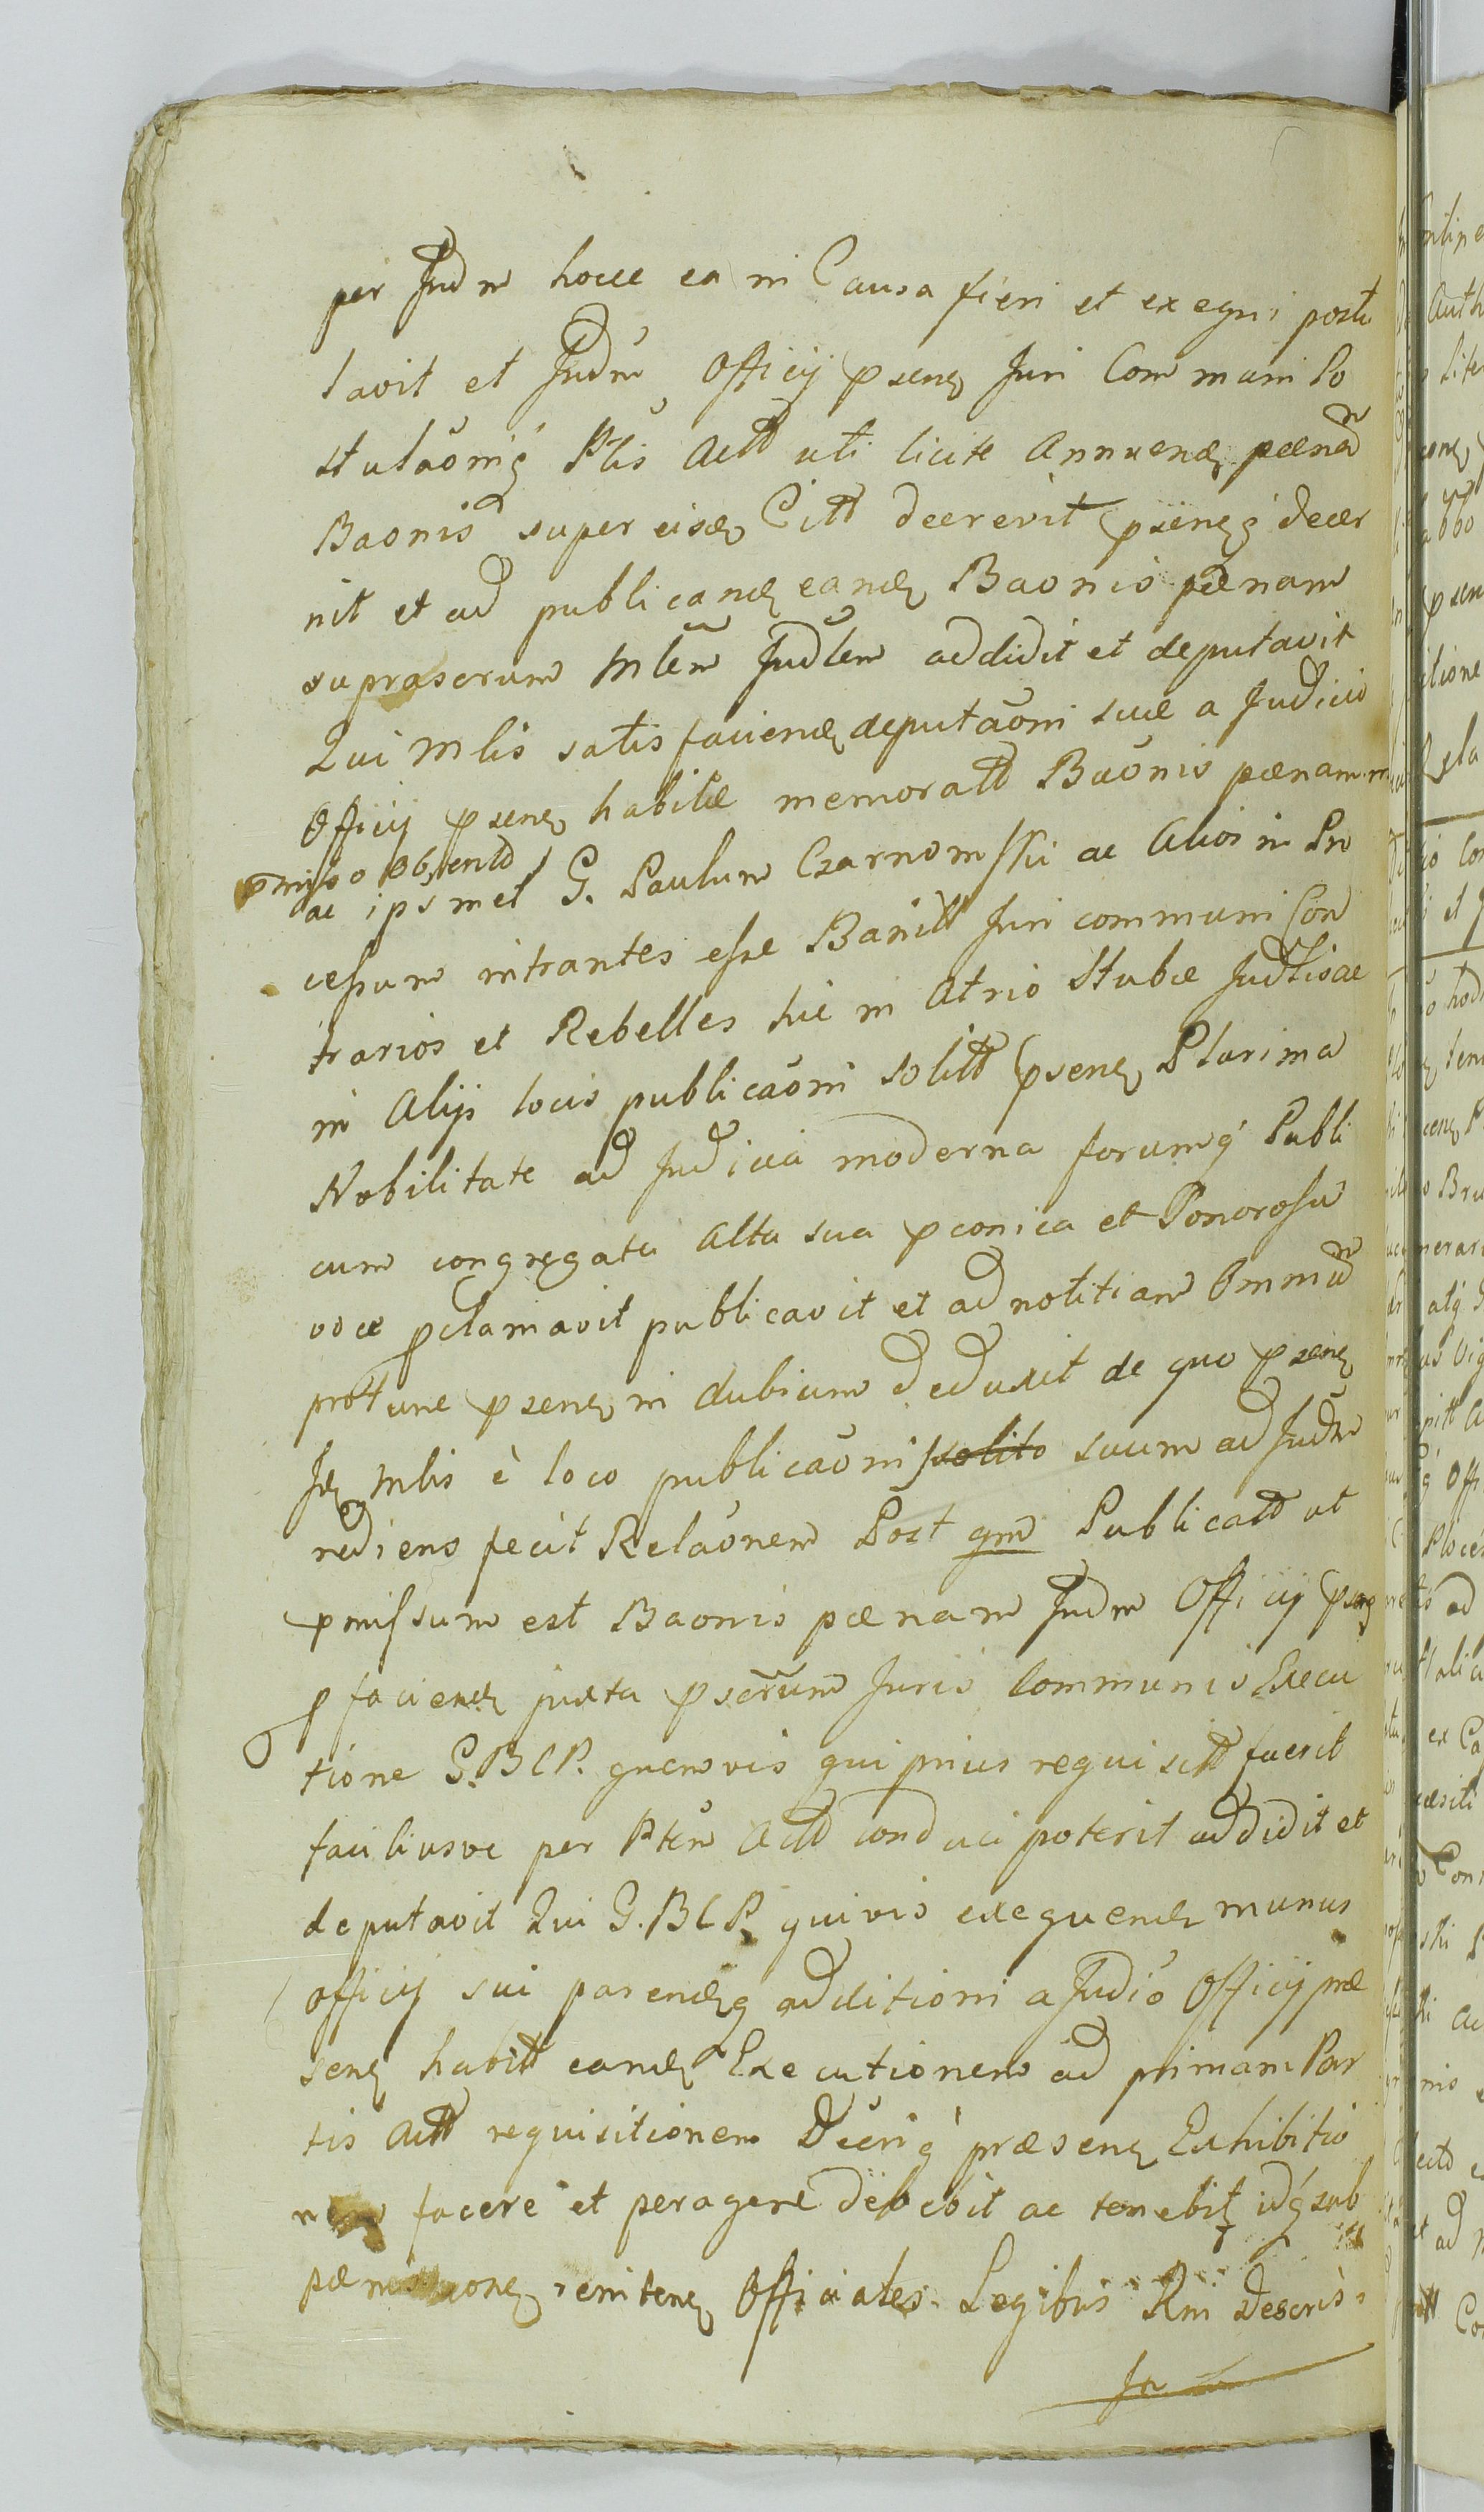 per Judm hocce ea in Causa fieri et exequi postu
lavit et Judm Officij psens Juri Communi Po
stulaoniq Ptis Actt uti licite Annuens pænam
Baonis super eisd Citt decrevit psensq decer
nit et ad publicand eand Baonis pænam
suprascrum Mlem Judlem addidit et deputavit
Qui Mlis satisfaciend deputaoni suæ a Judicio
Officij psens habitæ memoratt Baonis pænam in
pmisso obtentt
ac ipsmet G. Paulum Czarnomski ac Alios in Pro
cessum intrantes esse Banitt Juri communi Con
trarios et Rebelles hic in Atrio Stubæ Judlis ac
in Alijs locis publicaoni solitt psens Plurima
Nobilitate ad Judicia moderna forumq Publi
cum congregata Alta sua pconica et Sonorosa
voce pclamavit publicavit et ad notitiam Omnium
protunc psens in dubium deduxit de quo psens
Id Mlis è loco publicaoni solito suum ad Judm
rediens fecit Relaonem Post qm Publicatt ut
pmissum est Baonis pænam Judm Officij psens
p faciend juxta pscrum Juris Communis Execu
tione G. B C P. quemvis qui prius requisitt fuerit
faciliusve per Ptem Actt conduci poterit addidit et
deputavit Qui G. B C P. quivis exequend munus
officij sui parendq additioni a Judio Officij præ
sens habitt eand Executionem ad primam Par
tis Actt requisitionem Decriq præsens Exhibitio
nem facere et peragere debebit ac tenebit idq sub
pænis renitens Officiales Legibus Rni descris